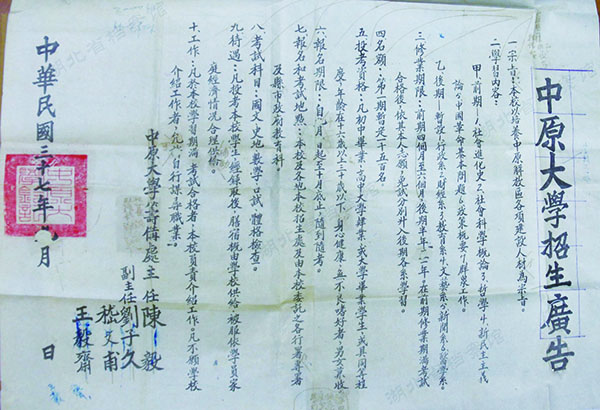 中原大學招生廣告
一宗旨：本校以培養中原解放區各項建設人材為宗旨。
二學習內容：
甲、前期—人社會進化史2.社會科學概論3.哲學4.新民主主義
論5.中國革命基本問題6.政策概要7.群眾工作。
乙後期—暫設1.行政系2.財經系3.教育系4.文藝系5.新聞系6.醫學系。
三修業期限：前期四個月至六個月後期半年—一年。在前期修業期滿考試
合格後，依其本人志願，免試分別升入後期各系學習。
四名額：第一期暫定一千五百名。
五投考資格：凡初中畢業，高中大學肄業，或大學畢業學生，或具同等程
度，年齡在十六歲以上三十歲以下，身心健康，無不良嗜好者，男女兼收。
六報名期限：自九月一日起至十月底止，隨到隨考。
七報名和考試地點：本校及各地本校招生處及由本校委託之各行署專署
及縣市政府教育科。
八考試科目：國文、史地、數學、口試、體格檢查。
九待遇：凡投考本校學生，一經錄取後，膳宿概由學校供給，被服依學員家
庭經濟情況合理補助。
十工作：凡於本校學習期滿，考試合格者，本校負責介紹工作，凡不願學校
介紹工作者，允許自行謀尋職業。
中原大學籌備處主任陳毅
副主任劉子久
嵇文甫
王毅齋
中華民國三十七年 月 日